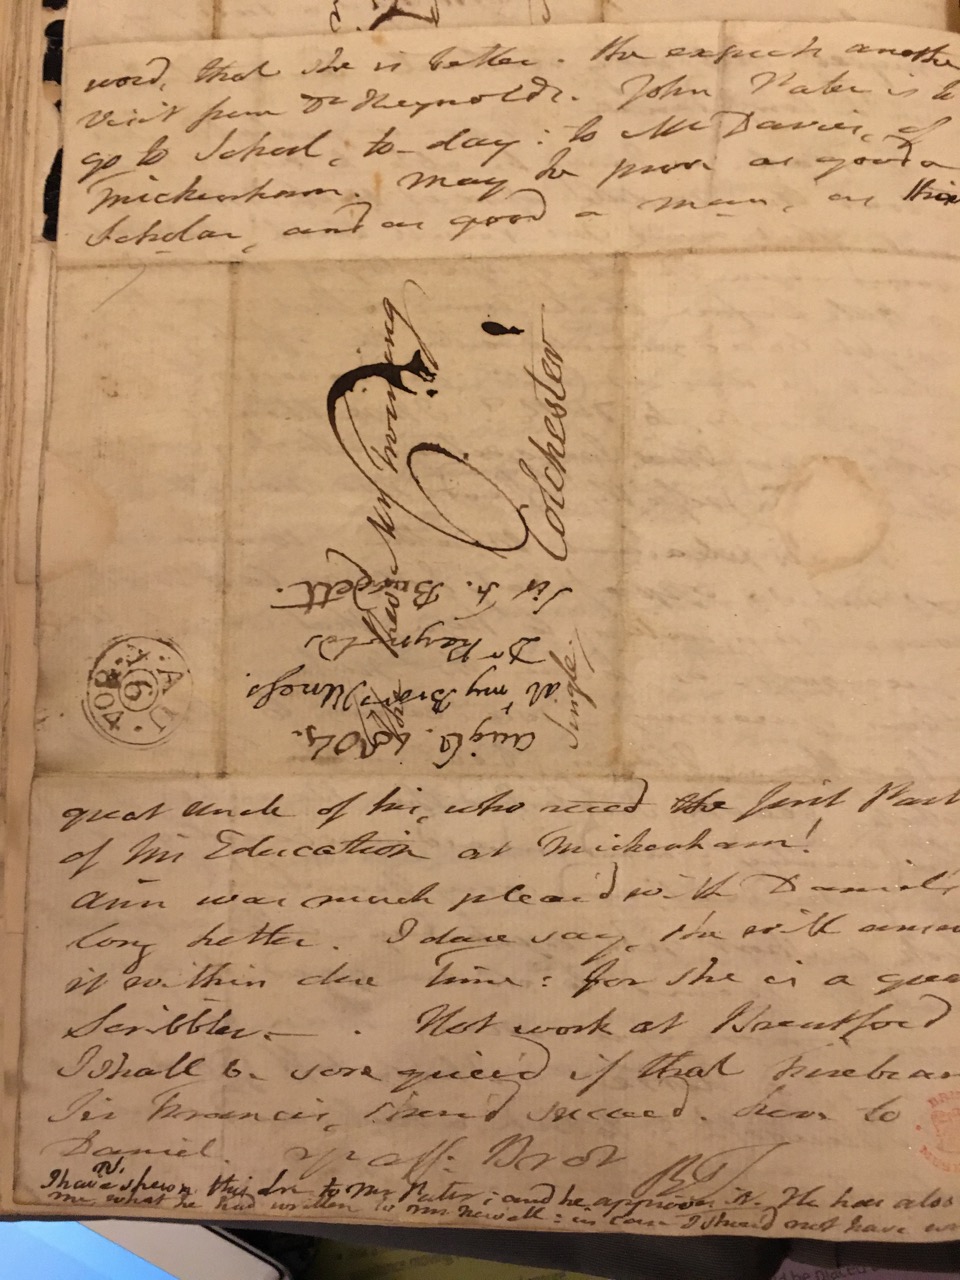 word, that she is better. He expects another
visit from Dr Reynolds. John Pater is to
go to School, to-day: to Mr Davies, of
Mickenham. May he prove as good a
Scholar, and as good a man, as this
The Revd Mr Twining
Colchester
Single
Aug. 6. 1804.
at my Bror's Illness.
Dr Reynolds
Sir F. Burdett.
AU
6
804
great uncle of his, who reced the first Part
of his Education at Mickenham!
Ann was much pleas'd with Daniel's
long letter. I dare say, she will answ
it within due time: for she is a grea
Scribbler. Hot work at Brentford
I shall be sore griev'd if that firebran
Sir Francis, shou'd succeed. Love to
Daniel. Yr aff. Bror RT
I have shewn this to Mr Pater: and he approves it. He has also
me what he had written to Mr Newell: in case I should not have